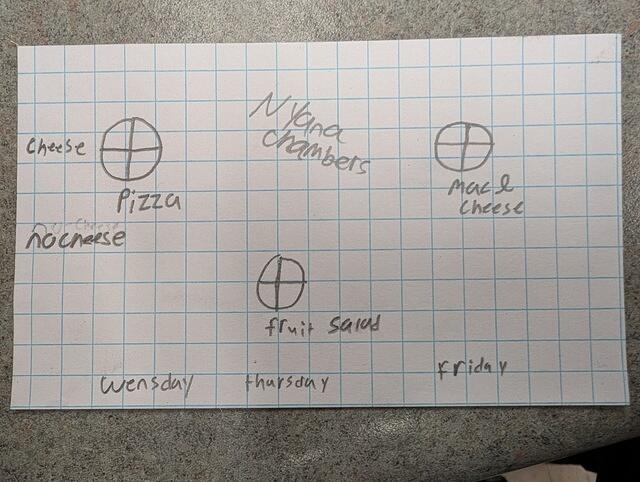 Nyana
chambers
cheese
Pizza
mac &
cheese
nocheese
fruit salad
wensday
thursday
friday